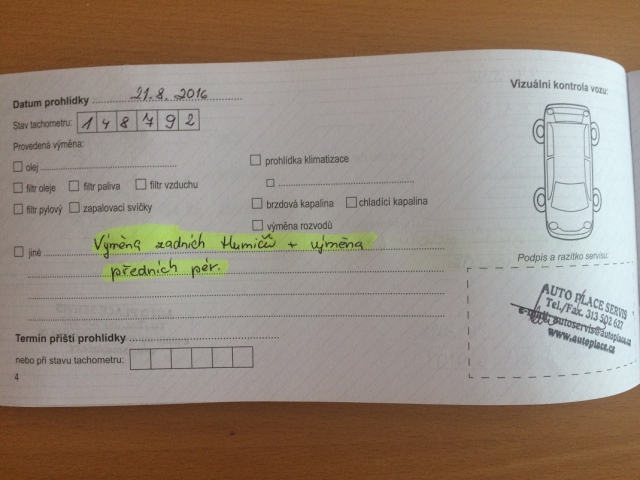 Datum prohlídky 21.8.2016
Stav tachometru: 148792
Provedená výměna:
olej
filtr oleje filtr paliva filtr vzduchu
filtr pylový zapalovací svíčky
prohlídka klimatizace
brzdová kapalina chladící kapalina
výměna rozvodů
jiné Výměna zadních tlumičů + výměna
předních pér.
Termín příští prohlídky
nebo při stavu tachometru:
4
Vizuální kontrola vozu:
Podpis a razítko servisu:
AUTO PLACE SERVIS
Tel./Fax. 313 502 627
autoservis@autoplace.cz
www.autoplace.cz